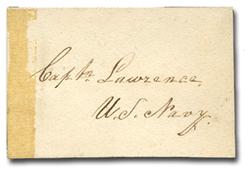 Captn Lawrence,
U.S. Navy.